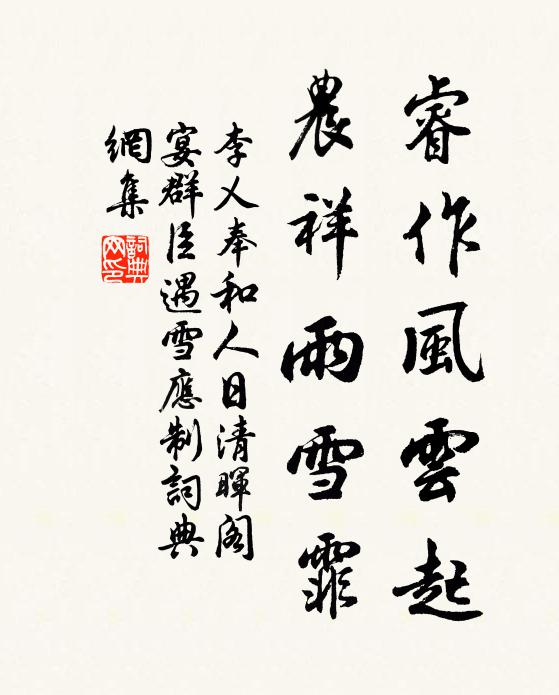 睿作風雲起
農祥雨雪霏
李乂奉和人日清暉閣
宴群臣遇雪應制詞典
網集
詞典
网印